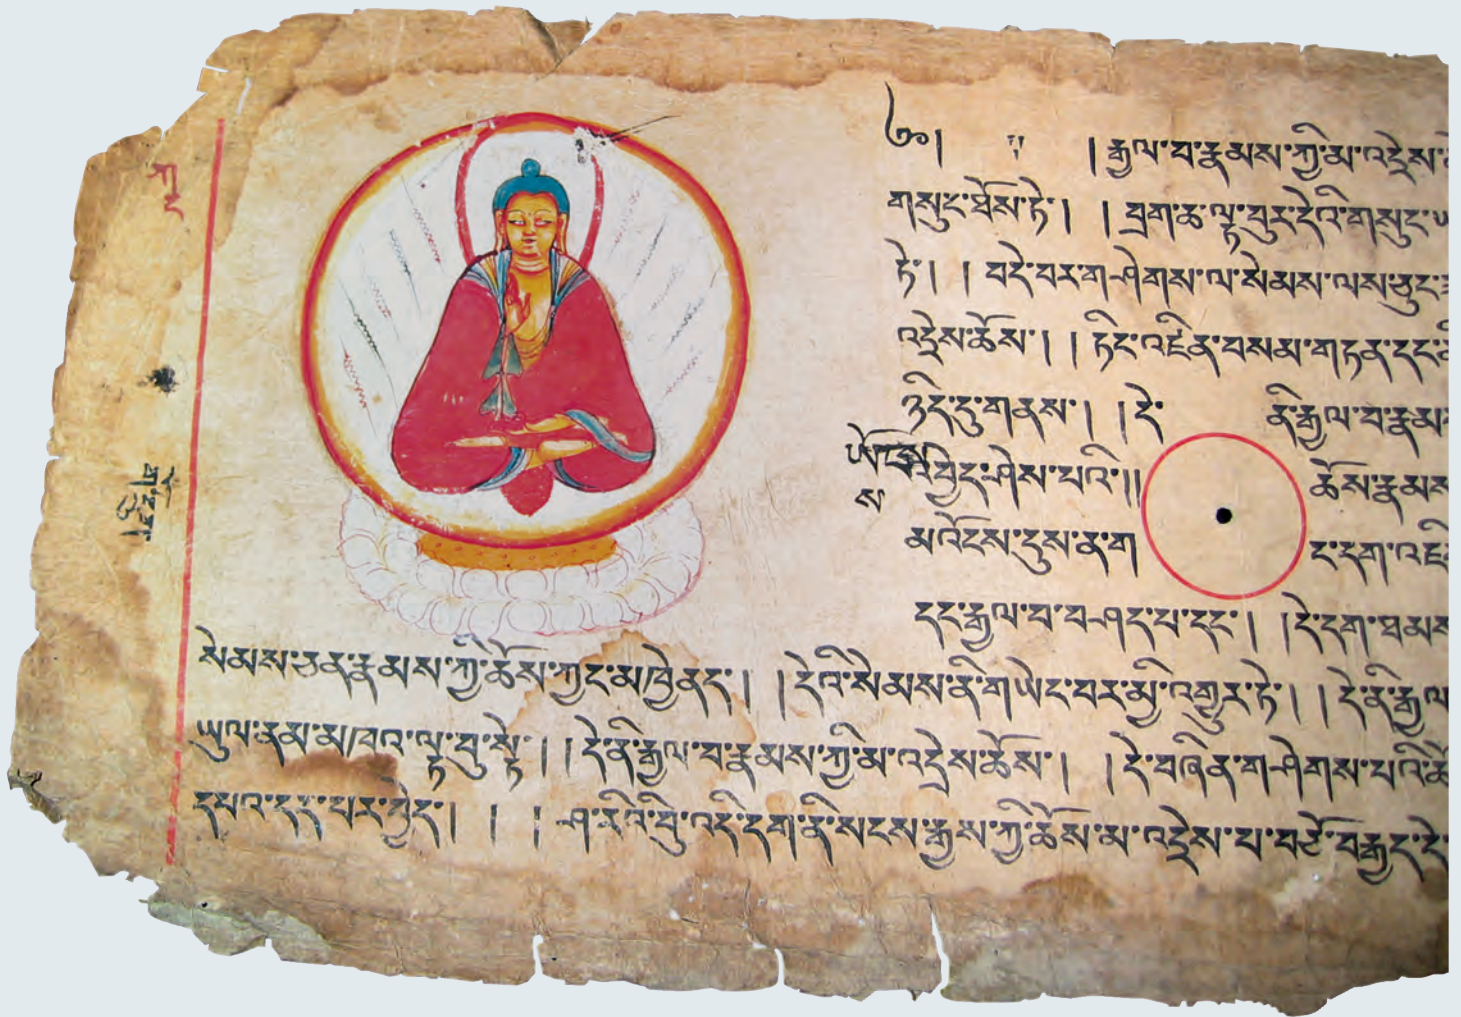 ༄༅། ། །རྒྱལ་བ་རྣམས་ཀྱི་མ་འདྲེས་
གསུང་ཐོས་ཏེ། །བྲག་ཆ་ལྟ་བུར་དེའི་གསུང་
ཏེ། །བདེ་བར་གཤེགས་ལ་སེམས་ལས་བྱུང་
འདྲེས་ཆོས། །ཏིང་འཛིན་བསམ་གཏན་དང་
ཉིད་དུ་གནས། །དེ་ ནི་རྒྱལ་བ་རྣམ
བྱེད་ཤེས་པའི།། ཆོས་རྣམས
ས
མ་འོངས་དུས་ན་ག ང་དག་འ
དང་རྒྱལ་བ་བཤད་པ་དང་། །དེ་དག་ཐམས
སེམས་ཅན་རྣམས་ཀྱི་ཆོས་ཀྱང་མཁྱེནད། །དེའི་སེམས་ནི་གཡེང་བར་མྱི་འགྱུར་ཏེ། །དེ་ནི་རྒྱལ
ཡུལ་ནམ་མཁའ་ལྟ་བུ་སྟེ། །དེ་ནི་རྒྱལ་བ་རྣམས་ཀྱི་མ་འདྲེས་ཆོས། །དེ་བཞིན་གཤེགས་པའི་
དཔའ་དད་པར་བྱེད། ། །ཤ་རིའི་བུ་འདི་དག་ནི་སངས་རྒྱས་ཀྱི་ཆོས་མ་འདྲེས་པ་བཅོ་བརྒྱད་དེ